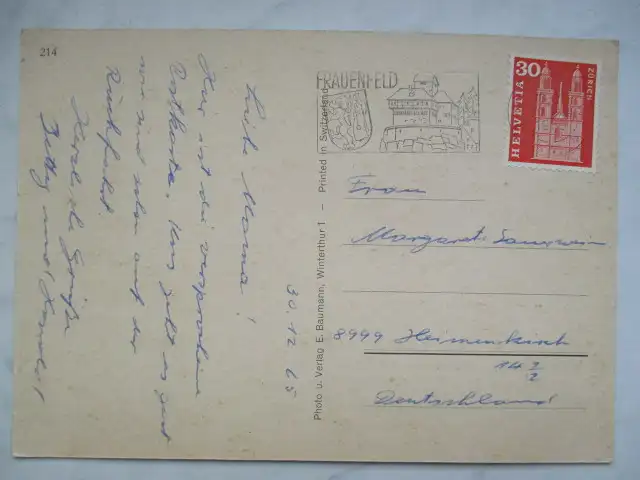 214
Liebe Mama!
Hier ist die versprochene
Postkarte. Uns geht es gut
wir sind schon auf der
Rückfahrt.
Herzliche Grüße
und
30.12.65
Photo u. Verlag E. Baumann, Winterthur 1 – Printed in Switzerland
FRAUENFELD
HELVETIA 30
ZÜRICH
Frau
Margarete
8999 Heimenkirch
14 2/2
Deutschland